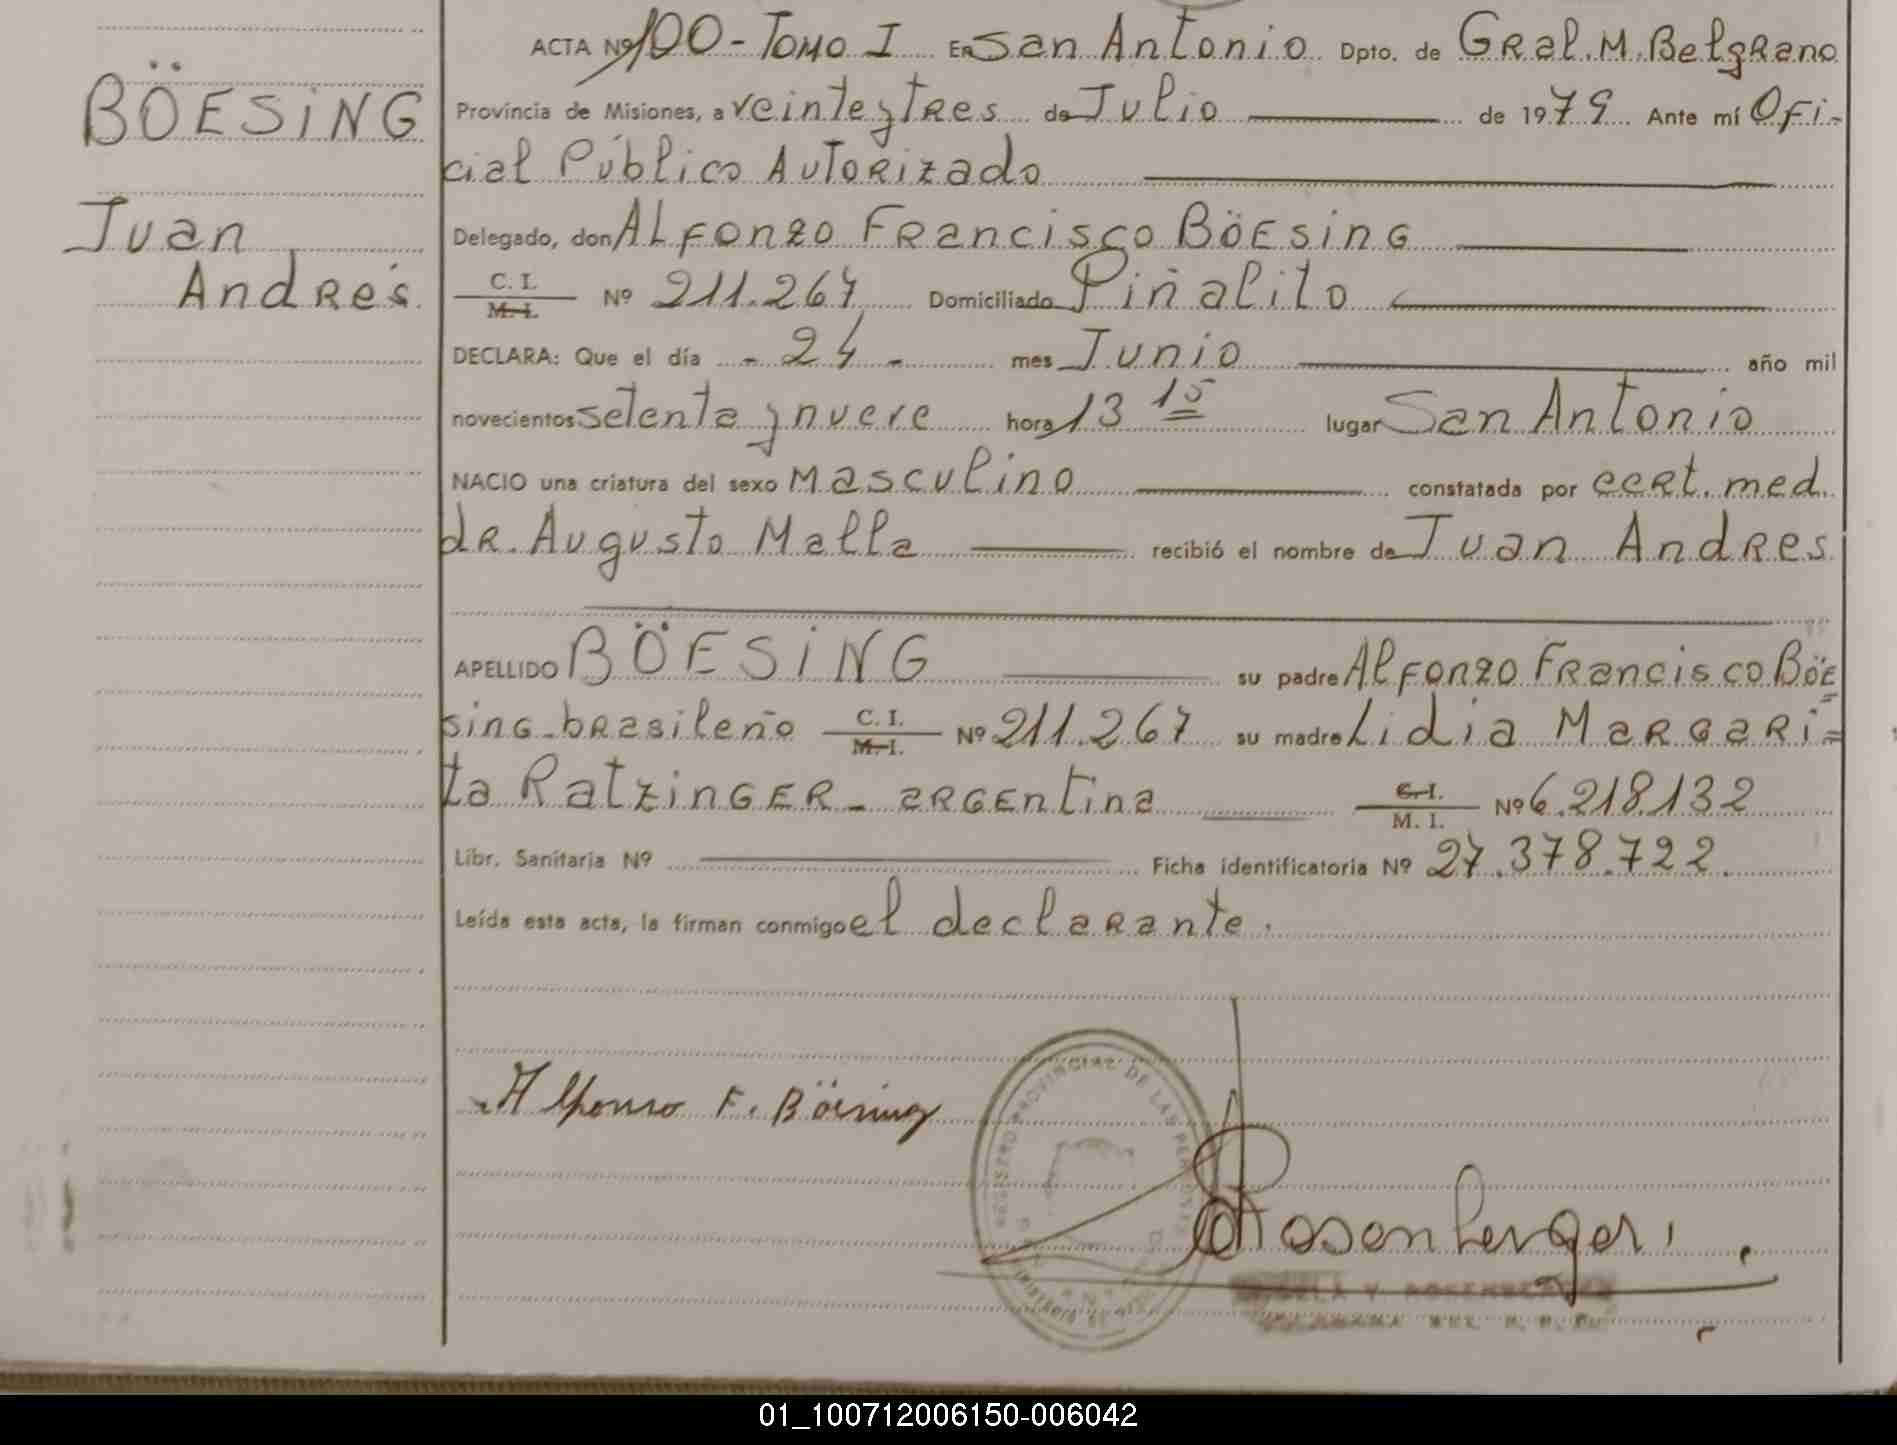 ACTA Nº 100 - Tomo I En San Antonio Dpto. de Gral. M. Belgrano
BÖESING
Provincia de Misiones, a veinte y tres de Julio de 1979 Ante mí Ofi-
cial Público Autorizado
Juan
Delegado, don Alfonzo Francisco Böesing
Andrés
C. I.
M. I. Nº 211.267 Domiciliado Piñalito
DECLARA: Que el día - 24 - mes Junio año mil
novecientos setenta y nueve hora 13 15 lugar San Antonio
NACIO una criatura del sexo Masculino constatada por cert. med.
dr. Augusto Malla recibió el nombre de Juan Andres
APELLIDO BÖESING su padre Alfonzo Francisco Böe
sing - brasileño C. I.
M. I. Nº 211.267 su madre Lidia Margari=
ta Ratzinger - argentina C. I.
M. I. Nº 6.218.132
Libr. Sanitaria Nº Ficha identificatoria Nº 27.378.722.
Leída esta acta, la firman conmigo el declarante.
REGISTRO PROVINCIAL DE LAS PERSONAS
Alfonso F. Böesing
Rosenberger
01_100712006150-006042